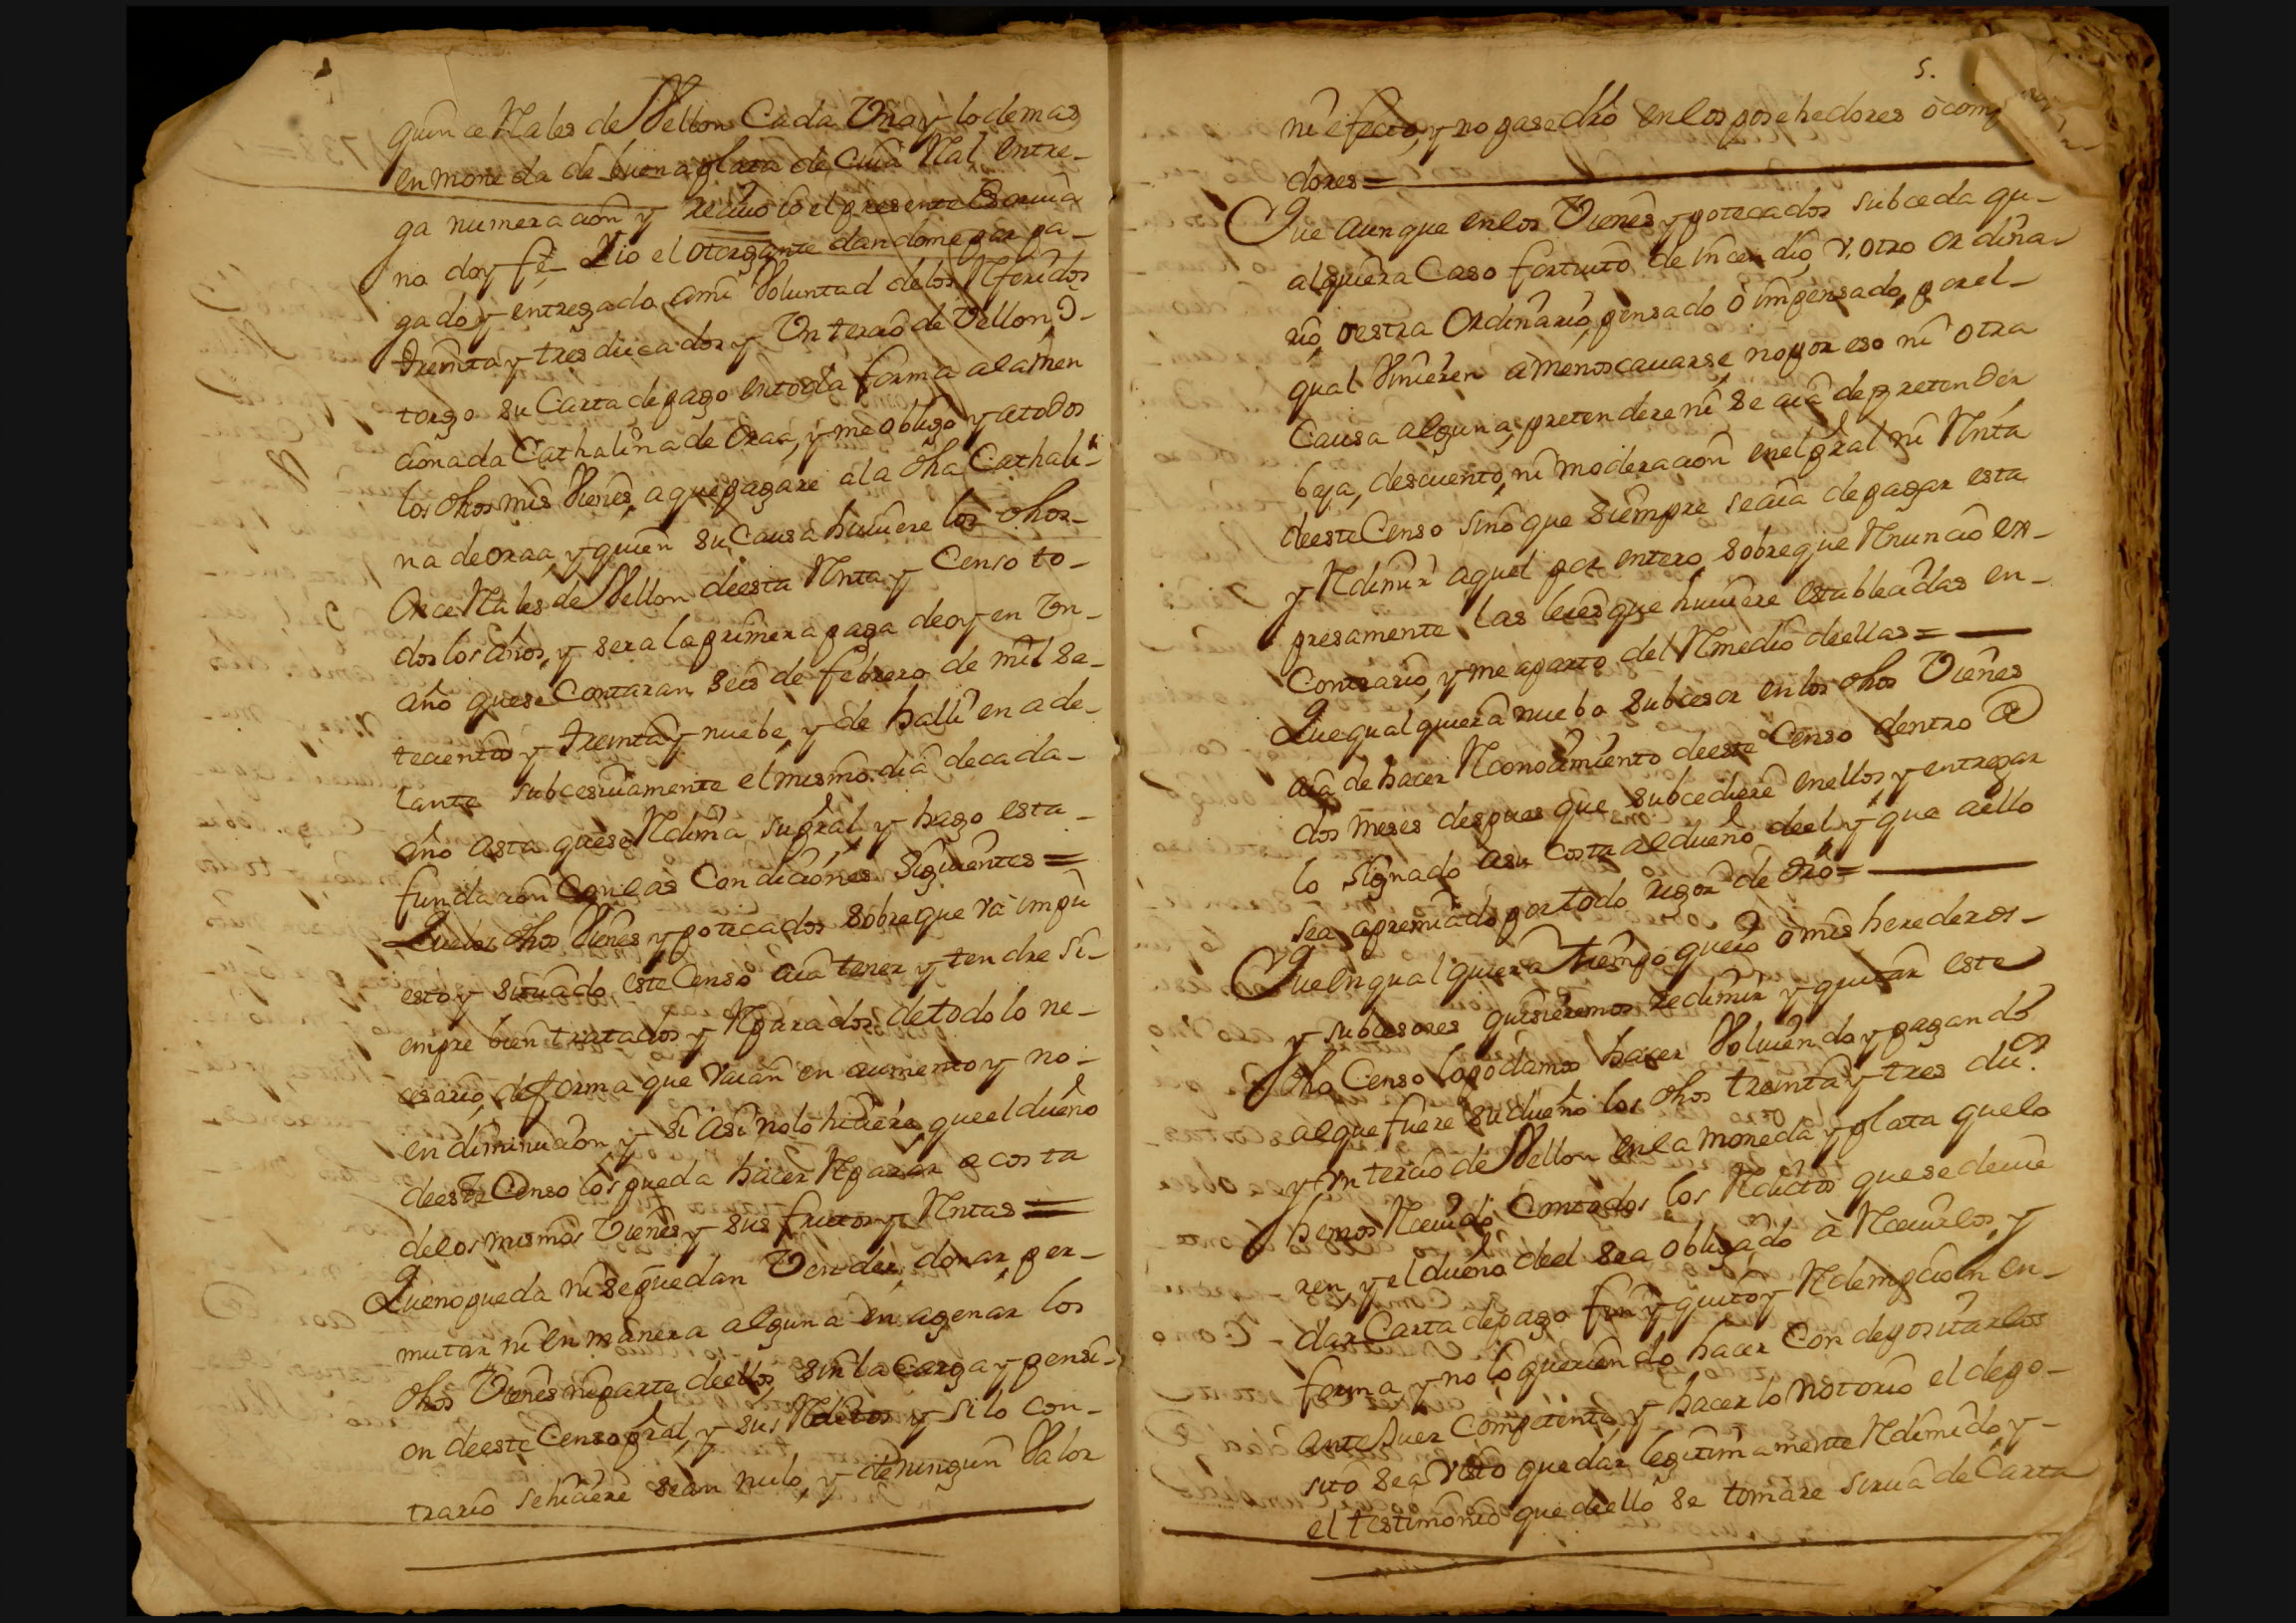 quince Rales de Vellon Cada Una y lo demas
en moneda de buena plata de cuia Ral entre-
ga numeracion y reciuo io el presente Escriua
no doy fe Y io el otorgante dandome por pa-
gado y entregado ami Voluntad delos Referidos
treinta y tres ducados y Un tercio de Vellon O-
torgo su Carta de pago en toda forma ala men
cionada Cathalina de Oraa, y me obligo y a todos
los dhos mis Vienes, a que pagare ala dha Cathali-
na de oraa, y quien su Causa huuiere los dhos-
Once Rales de Vellon deesta Rnta y Censo to-
dos los años, y sera la primera paga de oy en Un-
año que se Contaran seis de febrero de mil se-
tecientos y treinta y nuebe, y de halli en ade-
lante subcesiuamente el mismo dia de cada-
año asta que se Rdima su pral y hago esta-
fundacion Con las Condiciones siguientes =
Que los dhos Vienes ypotecados sobre que va impu
esto y situado este Censo aia tener y tendre si-
empre bien tratados y Rparados de todo lo ne-
cesario, de forma que vaian en aumento y no-
en diminucion y si asi no lo hiciere que el dueño
deeste Censo los pueda hacer Rparar a costa
de los mismos Vienes y sus frutos y Rntas =
Que no pueda ni se puedan Vender, donar, per-
mutar ni en manera alguna en agenar los
dhos Vienes ni parte deellos sin la Carga y pensi-
on deeste Censo pral, y sus Rditos y si lo con-
trario se hiciere sean nulo, y de ningun Valor
5.
ni efecto, y no pase dro en los posehedores o comp
dores =
Que aunque en los Vienes ypotecados subceda qu-
alquiera Caso fortuito de incendio, v, otro ordina-
rio, o estra Ordinario, pensado o impensado, por el-
qual Vinieren a menoscauarse, no por eso ni otra
Causa alguna, pretendere ni se aia de pretender
baja, descuento, ni moderacion en el pral ni Rnta
deeste Censo sino que siempre se aia de pagar esta
y Rdimir aquel por entero, sobre que Rnuncio ex-
presamente las leies que huuiere establecidas en-
Contrario, y me aparto del Rmedio deellas =
Que qualquiera nuebo subcesor en los dhos Vienes
aia de hacer Rconocimiento deeste Censo dentro de
dos meses despues que subcediere en ellos, y entregar
lo signado a su costa al dueño deel, y que aello
sea apremiado por todo rigor de dro =
Que en qualquiera tiempo que io o mis herederos-
y subcesores quisieremos redimir y quitar este
dho Censo lo podamos hacer Voluiendo y pagando
al que fuere su dueño los dhos treinta y tres du.s
y Un tercio de Vellon en la moneda y plata que lo
hemos Rceuido Contados los Rditos que se deuie
ren, y el dueño deel sea obligado à Rceuirlos, y
dar Carta de pago fin y quito y Rdempcion en-
forma, y no lo queriendo hacer Con depositarlos
ante Juez Competente, y hacerlo notorio el depo-
sito sea visto quedar legitimamente Rdimido, y-
el testimonio que deello se tomare sirua de Carta